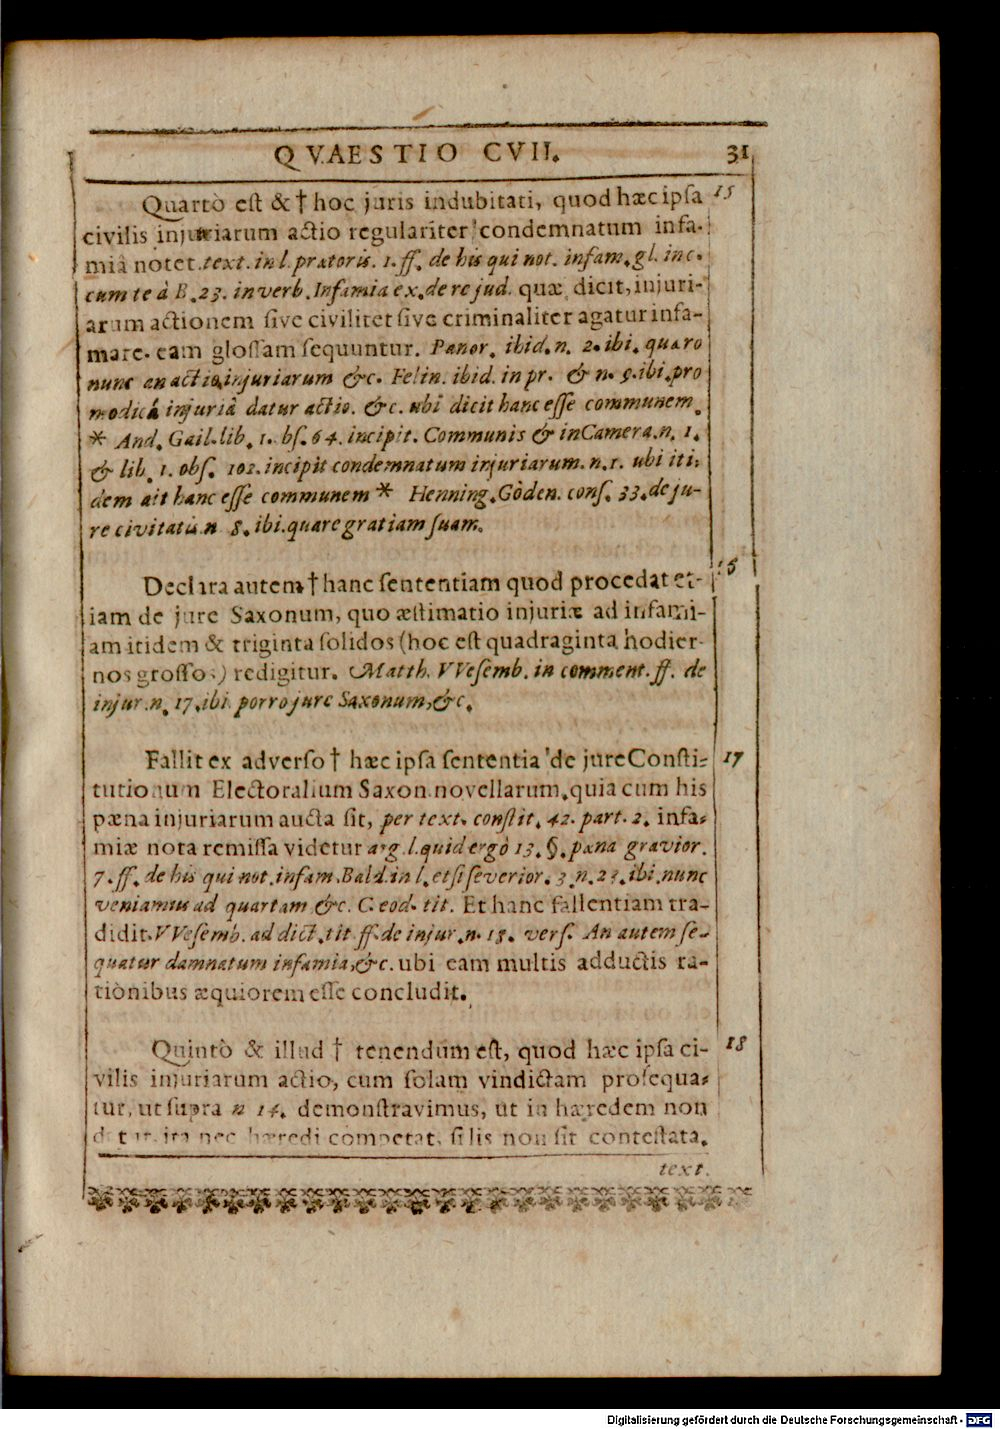 QVAESTIO CVII. 31
Quartò est & † hoc juris indubitati, quod hæc ipsa 15
civilis injuriarum actio regulariter condemnatum infa-
miâ notet. text. in l. prætoris. 1. ff. de his qui not. infam. gl. inc.
cum te à B. 23. in verb. Infamia ex. de re jud. quæ dicit, injuri-
arum actionem sive civiliter sive criminaliter agatur infa-
mare. eam glossam sequuntur. Panor. ibid. n. 2. ibi. quæro
nunc an actio injuriarum &c. Felin. ibid. in pr. & n. 5. ibi. pro
modicâ injuriâ datur actio. &c. ubi dicit hanc esse communem.
* And. Gail. lib. 1. obs. 64. incipit. Communis & in Camera. n. 1.
& lib. 1. obs. 102. incipit condemnatum injuriarum. n. 1. ubi iti-
dem ait hanc esse communem * Henning. Göden. cons. 33. de ju-
re civitatis n 8. ibi. quare gratiam suam.
Declara autem † hanc sententiam quod procedat et- 16
iam de jure Saxonum, quo æstimatio injuriæ ad infami-
am itidem & triginta solidos (hoc est quadraginta hodier-
nos grossos) redigitur. Matth. VVesemb. in comment. ff. de
injur. n. 17. ibi porro jure Saxonum, &c.
Fallit ex adverso † hæc ipsa sententia de jure Consti- 17
tutionum Electoralium Saxon. novellarum, quia cum his
pæna injuriarum aucta sit, per text. constit. 42. part. 2. infa-
miæ nota remissa videtur arg. l. quid ergò 13. §. pæna gravior.
7. ff. de his qui not. infam. Bald. in l. etsi severior. 3. n. 23. ibi. nunc
veniamus ad quartam &c. C. eod. tit. Et hanc fallentiam tra-
didit. VVesemb. ad dict. tit ff. de injur. n. 18. vers. An autem se-
quatur damnatum infamia, &c. ubi eam multis adductis ra-
tiònibus æquiorem esse concludit.
Quintò & illud † tenendum est, quod hæc ipsa ci- 18
vilis injuriarum actio, cum solam vindictam prosequa-
tur, ut supra n 14. demonstravimus, ut in hæredem non
datur, ita nec hæredi competat, si lis non sit contestata.
text.
Digitalisierung gefördert durch die Deutsche Forschungsgemeinschaft - DFG